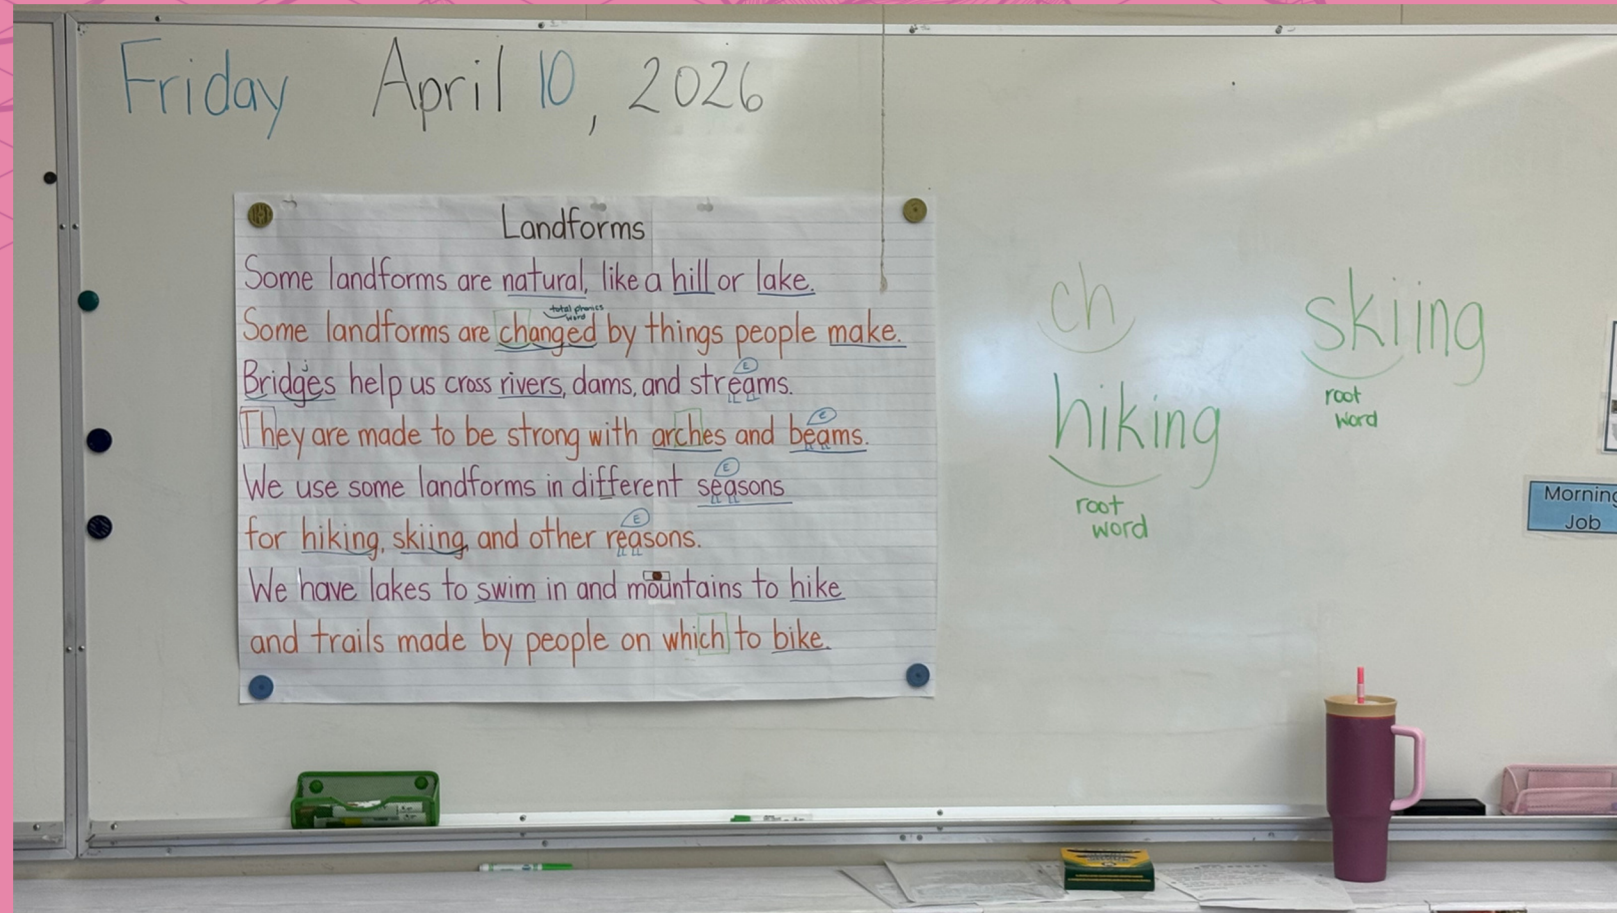 Friday April 10, 2026
Landforms
Some landforms are natural, like a hill or lake.
total phonics
word
Some landforms are changed by things people make.
E
Bridges help us cross rivers, dams, and streams.
e
They are made to be strong with arches and beams.
E
We use some landforms in different seasons
E
for hiking, skiing, and other reasons.
We have lakes to swim in and mountains to hike
and trails made by people on which to bike.
ch
hiking
root
word
skiing
root
word
Morning
Job